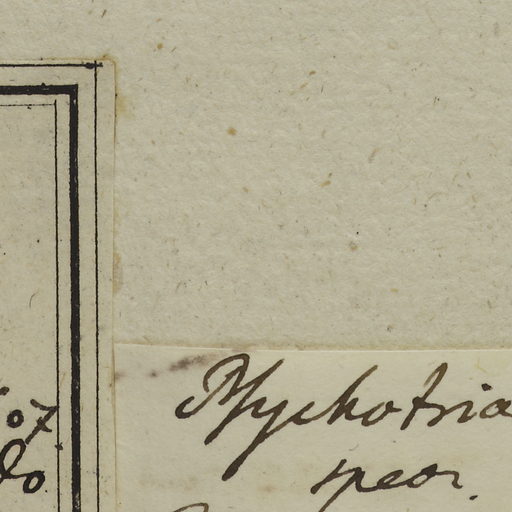 07
do
Psychotria
speer.